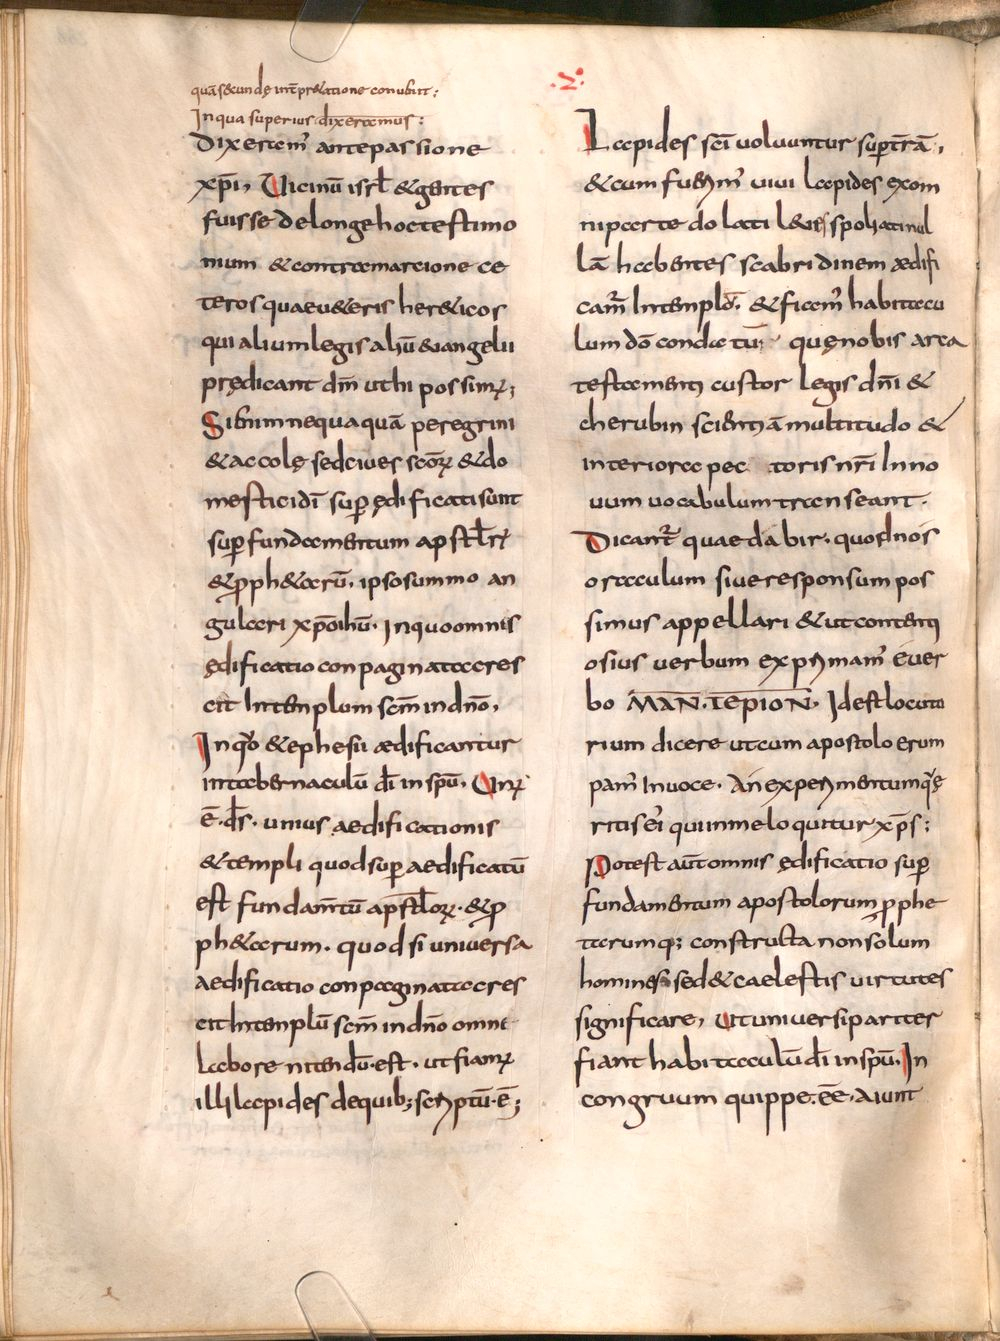 quā secundę int̄pr&atione conubiır:
In qua superius dixeramus:
Dixeram̄ ante passione
xp̄i, Uicinū isrl̄ & gentes
fuisse de longe hoc testimo
nium & contra marcione ce
teros quae u&eris her&icos
qui alium legis aliū euangelii
prędicant dm̄ uthi possim⁊;
Si enim nequaquā peregrini
& accolę sed ciues sc̄or⁊ & do
mestici dī sup̄ ędificati sunt
sup̄ fundamentum apstl̄r⁊
& ꝓph&arū. ipso summo an
gulari xp̄o ihū. In quo omnis
ędificatio conpaginata cres
cit In templum scm̄ in dn̄o,
In q̄o & ephesii ædificantur
in tabernaculū dī in spū. Un⁊
ē. ds̄. unius aedificationis
& templi quod sup̄ aedificatū
est fundam̄tū apstl̄or⁊. & ꝓ
ph&arum. quod si uniuersa
aedificatio conpaginata cres
cit In templū scm̄ in dn̄o omni
labore nitendū. est. ut fiam⁊
illi lapides de quib; scriptū. ē;
.2.
Lapides scī uoluuntur sup̄ trā,
& cum fuerim̄ uiui lapides ex om
ni parte dolati leues poliati nul
lā habentes scabridinem ædifi
cam̄ In templō. & ficem̄ habitacu
lum dō condictū quę nobis arca
testamenti custor legis dn̄i &
cherubin scientiā multitudo &
interiora pec toris nr̄i In no
uum uocabulum transeant.
Dicant̄ quae dabir. quod nos
oraculum siue responsum pos
simus appellari & ut contenti
osius uerbum exprimam̄ euer
bo MAN.TEPION. Id est locuto
rium dicere ut cum apostolo erum
pam̄ In uoce. An experimentum q̄ę
ritis ei qui in me loquitur xp̄s;
Potest aūt omnis ędificatio sup̄
fundamentum apostolorum ꝓphe
tarumq; constructa non solum
homines sed & caelestis uirtutes
significare, Ut uniuersi pariter
fiant habitaculū dī in spū. In
congruum quippe. ēē. Aiunt